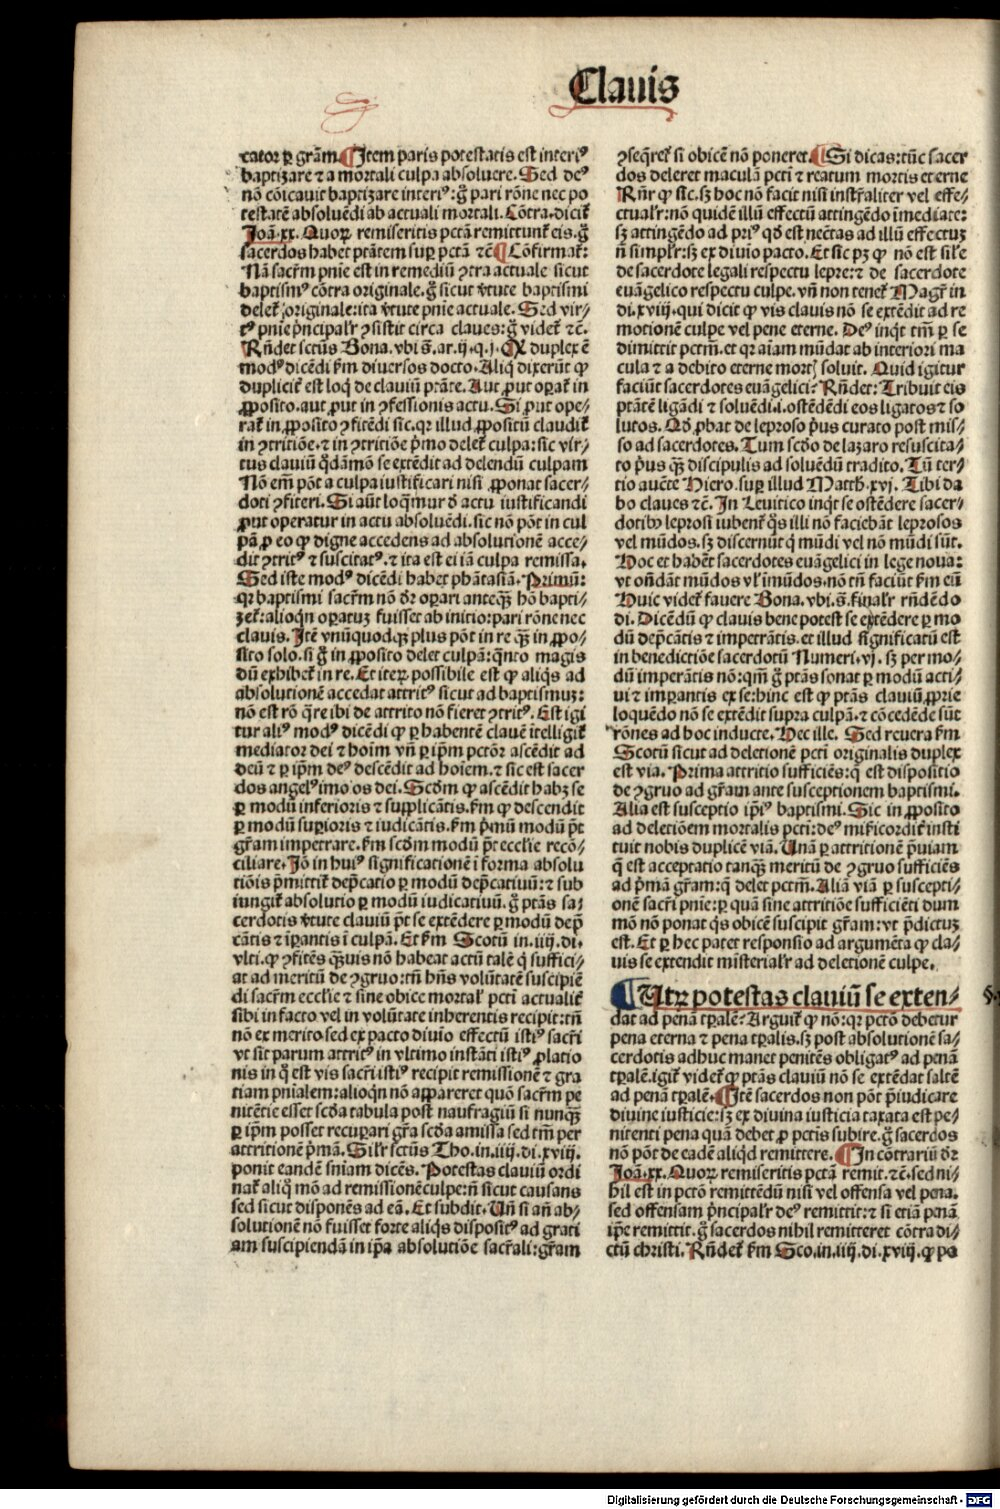 Clauis
cator ꝑ grām. ¶Item paris potestatis est interiꝰ
baptizare ⁊ a mortali culpa absoluere. Sed deꝰ
nō cōicauit baptizare interiꝰ: g̃ pari rōne nec po
testatē absoluēdi ab actuali mortali. Cōtra. dicit̃
Joā. xx. Quoꝝ remiseritis pctā remittunt̃ eis. g̃
sacerdos habet ptātem suꝑ pctā ⁊c̃ ¶Cōfirmat̃:
Nā sacr̄m pnīe est in remediū ꝯtra actuale sicut
baptismꝰ cōtra originale. g̃ sicut v̄tute baptismi
delet̃ originale: ita v̄tute pnīe actuale. Sed vir⸗
tꝰ pnīe p̄ncipalr̄ ꝯsistit circa claues: g̃ videt̃ ⁊c̃.
Rn̄det sctūs Bona. vbi s̄. ar. ij. q. j. ꝙ duplex ē
modꝰ dicēdi fm̄ diuersos docto. Aliq̇ dixerūt ꝙ
duplicit̃ est loq̇ de clauiū ptāte. Aut ꝓut oꝑat̃ in
ꝓposito. aut ꝓut in ꝯfessionis actu. Si ꝓut ope⸗
rat̃ in ꝓposito ꝯfitēdi sic. qr illud ꝓpositū claudit̃
in ꝯtritiōe. ⁊ in ꝯtritiōe p̄mo delet̃ culpa: sic vir⸗
tus clauiū q̇dāmō se extēdit ad delendū culpam
Nō em̄ pōt a culpa iustificari nisi ꝓponat sacer⸗
doti ꝯfiteri. Si aūt loq̇mur d̄ actu iustificandi
ꝓut operatur in actu absoluēdi. sic nō pōt in cul
pā. ꝓ eo ꝙ digne accedens ad absolutionē acce⸗
dit ꝯtritꝰ ⁊ suscitatꝰ. ⁊ ita est ei iā culpa remissa.
Sed iste modꝰ dicēdi habet phātasiā. Primū:
qr baptismi sacr̄m nō dr̄ oꝑari anteqꝫ hō bapti⸗
zet̃: alioqn̄ oꝑatuꝫ fuisset ab initio: pari rōne nec
clauis. Itē vnūquodqꝫ plus pōt in re qꝫ in ꝓpo⸗
sito solo. si g̃ in ꝓposito delet culpā: q̄nto magis
dū exhibet̃ in re. Et iteꝝ possibile est ꝙ aliq̇s ad
absolutionē accedat attritꝰ sicut ad baptismuꝫ:
nō est rō q̄re ibi de attrito nō fieret ꝯtritꝰ. Est igi
tur aliꝰ modꝰ dicēdi ꝙ ꝑ habentē clauē ītelligit̃
mediator dei ⁊ hoim̄ vn̄ ꝑ ip̄m pctōr ascēdit ad
deū ⁊ ꝑ ip̄m deꝰ descēdit ad hoiem. ⁊ sic est sacer
dos angelꝰ imo os dei. Scdm̄ ꝙ ascēdit habꝫ se
ꝑ modū inferioris ⁊ supplicātis. fm̄ ꝙ descendit
ꝑ modū suꝑioris ⁊ iudicātis. fm̄ p̄mū modū pt̄
gr̄am impetrare. fm̄ scdm̄ modū pt̄ ecclīe recō⸗
ciliare. Jō in huiꝰ significationē ī forma absolu
tiōis p̄mittit̃ dep̄catio ꝑ modū dep̄catiuū: ⁊ sub
iungit̃ absolutio ꝑ modū iudicatiuū. g̃ ptās sa⸗
cerdotis v̄tute clauiū pt̄ se extēdere ꝑ modū dep̄
cātis ⁊ īꝑantis ī culpā. Et fm̄ Scotū in. iiij. di.
vlti. ꝙ ꝯfitēs qꝫuis nō habeat actū talē q̇ suffici⸗
at ad meritū de ꝯgruo: tn̄ hn̄s volūtatē suscipiē
di sacr̄m ecclīe ⁊ sine obice mortal̓ pcti actualit̃
sibi in facto vel in volūtate inherentis recipit: tn̄
nō ex merito sed ex pacto diuīo effectū istiꝰ sacr̄i
vt sit parum attritꝰ in vltimo instāti istiꝰ ꝓlatio
nis in q̇ est vis sacr̄i istiꝰ recipit remissionē ⁊ gra
tiam pnīalem: alioqn̄ nō appareret quō sacr̄m pe
nitētie esset scd̄a tabula post naufragiū si nunqꝫ
ꝑ ip̄m posset recuꝑari gr̄a scd̄a amissa sed tm̄ per
attritionē p̄mā. Silr̄ sctūs Tho. in. iiij. di. xviij.
ponit eandē snīam dicēs. Potestas clauiū ordi
nat̃ aliq̇ mō ad remissionē culpe: n̄ sicut causans
sed sicut disponēs ad eā. Et subdit. Un̄ si an̄ ab⸗
solutionē nō fuisset forte aliq̇s dispositꝰ ad grati
am suscipiendā in ip̄a absolutiōe sacr̄ali: gr̄am
ꝯseq̄ret̃ si obicē nō poneret. ¶Si dicas: tūc sacer
dos deleret maculā pcti ⁊ reatum mortis eterne
Rn̄r ꝙ sic. sꝫ hoc nō facit nisi instr̄aliter vel effe⸗
ctualr̄: nō quidē illū effectū attingēdo īmediate:
sꝫ attingēdo ad priꝰ qd̄ est nec̄tas ad illū effectuꝫ
n̄ simplr̄: sꝫ ex diuīo pacto. Et sic pꝫ ꝙ nō est sil̓e
de sacerdote legali respectu lepre: ⁊ de sacerdote
euāgelico respectu culpe. vn̄ non tenet̃ Magr̄ in
di. xviij. qui dicit ꝙ vis clauis nō se extēdit ad re
motionē culpe vel pene eterne. Deꝰ inq̇t tm̄ ꝑ se
dimittit pctm̄. et qr aīam mūdat ab interiori ma
cula ⁊ a debito eterne mort̃ soluit. Quid igitur
faciūt sacerdotes euāgelici? Rn̄det: Tribuit eis
ptātē ligādi ⁊ soluēdi. i. ostēdēdi eos ligatos ⁊ so
lutos. Qd̄ ꝓbat de leproso p̄us curato post mis⸗
so ad sacerdotes. Tum scdo de lazaro resuscita⸗
to p̄us qꝫ discipulis ad soluēdū tradito. Tū ter⸗
tio auc̄te Hiero. suꝑ illud Matth. xvj. Tibi da
bo claues ⁊c̃. In Leuitico inq̇t se ostēdere sacer⸗
dotibꝰ leprosi iubent̃ q̇s illi nō faciebāt leprosos
vel mūdos. sꝫ discernūt q̇ mūdi vel nō mūdi sūt.
Hoc et habēt sacerdotes euāgelici in lege noua:
vt on̄dāt mūdos vl̓ īmūdos. nō tn̄ faciūt fm̄ eū
Huic videt̃ fauere Bona. vbi. s̄. finalr̄ rn̄dēdo
di. Dicēdū ꝙ clauis bene potest se extēdere ꝑ mo
dū dep̄cātis ⁊ impetrātis. et illud significatū est
in benedictiōe sacerdotū Numeri. vj. sꝫ per mo⸗
dū imperātis nō: qm̄ g̃ ptās sonat ꝑ modū acti⸗
ui ⁊ imꝑantis ex se: hinc est ꝙ ptās clauiū ꝓprie
loquēdo nō se extēdit supra culpā. ⁊ cōcedēde sūt
rōnes ad hoc inducte. Hec ille. Sed reuera fm̄
Scotū sicut ad deletionē pcti originalis duplex
est via. Prima attritio sufficiēs: q̄ est dispositio
de ꝯgruo ad gr̄am ante susceptionem baptismi.
Alia est susceptio ip̄iꝰ baptismi. Sic in ꝓposito
ad deletiōem mortalis pcti: deꝰ mīsericordit̃ insti
tuit nobis duplicē viā. Unā ꝑ attritionē p̄uiam
q̄ est acceptatio tanqꝫ meritū de ꝯgruo sufficiēs
ad p̄mā gr̄am: q̄ delet pctm̄. Aliā viā ꝑ suscepti⸗
onē sacr̄i pnīe: ꝑ quā sine attritiōe sufficiēti dum
mō nō ponat q̇s obicē suscipit gr̄am: vt p̄dictuꝫ
est. Et ꝑ hec patet responsio ad argumēta ꝙ cla⸗
uis se extendit misterialr̄ ad deletionē culpe.
¶Utꝝ potestas clauiū se exten⸗
dat ad penā tꝑalē? Arguit̃ ꝙ nō: qr pctō debetur
pena eterna ⁊ pena tꝑalis. sꝫ post absolutionē sa⸗
cerdotis adhuc manet penitēs obligatꝰ ad penā
tꝑalē. igit̃ videt̃ ꝙ ptās clauiū nō se extēdat saltē
ad penā tꝑalē. ¶Itē sacerdos non pōt p̄iudicare
diuine iusticie: sꝫ ex diuina iusticia taxata est pe⸗
nitenti pena quā debet ꝓ pctīs subire. g̃ sacerdos
nō pōt de eadē aliq̇d remittere. ¶In cōtrariū dr̄
Joā. xx. Quoꝝ remiseritis pctā remit. ⁊c̃. sed ni⸗
hil est in pctō remittēdū nisi vel offensa vel pena.
sed offensam p̄ncipalr̄ deꝰ remittit: ⁊ si etiā penā
ip̄e remittit. g̃ sacerdos nihil remitteret cōtra di⸗
ctū christi. Rn̄det̃ fm̄ Sco. in. iiij. di. xviij. ꝙ po
Digitalisierung gefördert durch die Deutsche Forschungsgemeinschaft - DFG